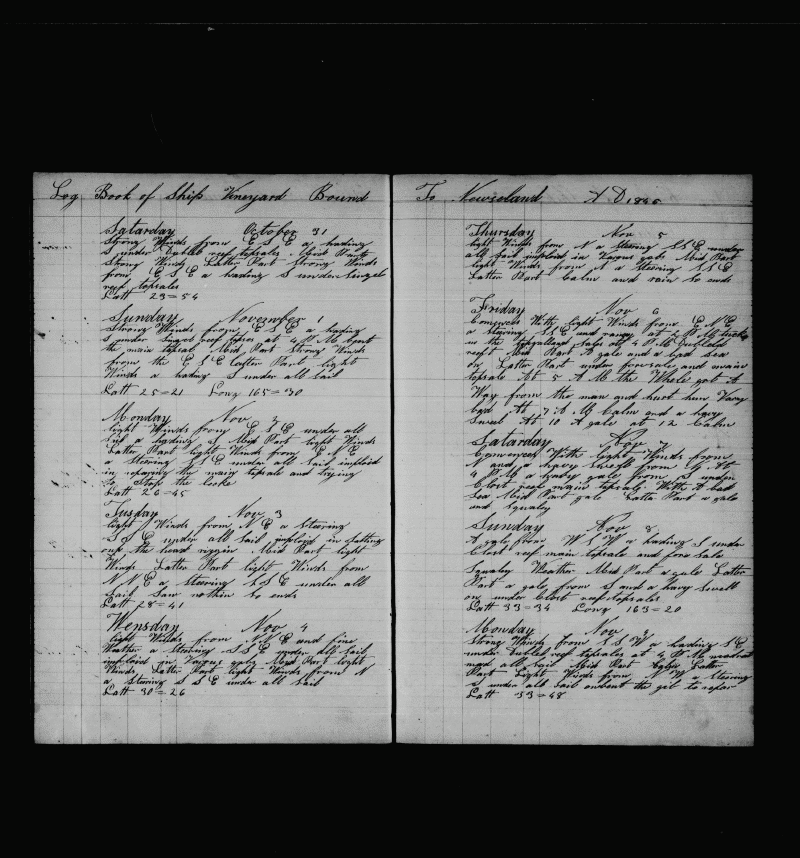 Log Book of Ship Vineyard Bound
Satarday October 31
Strong Winds from E S E a hading
S under dubble reef topsales First Part
Strong Winds Latter Part Strong Winds
from E S E a hading S under Singel
reef topsales
Latt 23=54
Sunday November 1
Strong Winds from E S E a hading
S under Singel reef topsales at 4 P M bent
the main topsail Mid Part Strong Winds
from the E S E Latter Part light
Winds a hading S under all sail
Latt 25=21 Long 165=30
Monday Nov 2
light Winds from E S E under all
sail a hading S Mid Part light Winds
Latter Part light Winds from E N E
a Steering S S E under all Sail imploid
in reparing the main topsale and trying
to Stop the leeke
Latt 26=45
Tusday Nov 3
light Winds from N E a Steering
S S E under all sail imploid in setting
cup the head rigain Mid Part light
Winds Latter Part light Winds from
N N E a Steering S S E under all
Sail Saw nothin So ends
Latt 28=41
Wensday Nov 4
light Winds from N N E and fine
Weather a Steering S S E under all Sail
imploid in Varous gobs Mid Part light
Winds Latter Part light Winds from N
a Steering S S E under all Sail
Latt 30=26
To Newzeland A D 18
Thursday Nov 5
light Winds from N a Steering S S E under
all Sail imploid in Varous gobs Mid Part
light Winds from N a Steering S S E
Latter Part Calm and rain So ends
Friday Nov 6
Comences With light Winds from E N E
a Steering S S E and raney at 2 P M tuck
in the topgallant sales at 4 P M dubbled
reeft Mid Part A gale and a bad sea
on Latter Part under foresale and main
topsale At 5 A M the Whole got A
Way from the man and hurt him Vary
bad At 7 A M Calm and a havy
Swell At 10 A gale at 12 Calm
Satarday Nov 7
Comences With light Winds from
N and a havy Swell from At
4 P M a havy gale from S under
Clost reef main topsail With A bad
Sea Mid Part gale Latter Part a gale
and Squaley
Sunday Nov 8
A gale from W S W a hading S under
Clost reef main topsale and fore sale
Squaley Weather Mid Part a gale Latter
Part a gale from S and a havy Swell
on under Clost reef topsales
Latt 33=34 Long 163=20
Monday Nov
Strong Winds from S S W a hading S E
under Dubbled reef topsales at 4 P M
mad all sail Mid Part Calm Latter
Part Light Winds from N W a Steering
S under all Sail unbent the gib to repar
Latt 33=48